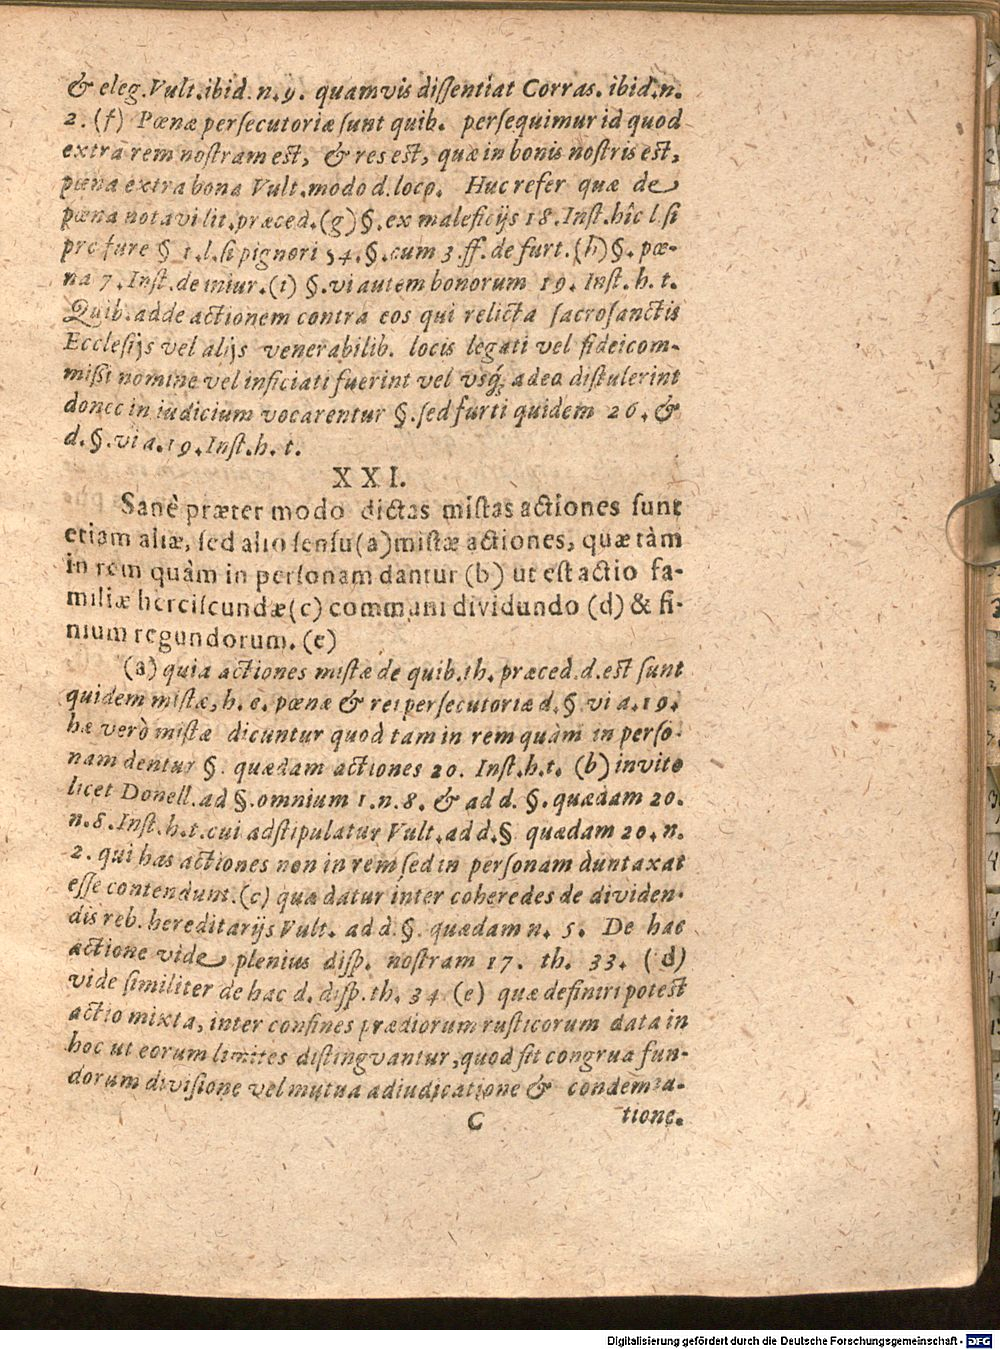 & eleg. Vult. ibid. n. 9. quamvis dissentiat Corras. ibid. n.
2. (f) Pœnæ persecutoriæ sunt quib. persequimur id quod
extra rem nostram est, & res est, quæ in bonis nostris est,
pœna extra bona Vult. modo d. loco. Huc refer quæ de
pœna notavi lit. præced. (g) §. ex maleficijs 18. Inst. hîc l. si
pro fure § 1. l. si pignori 54. §. cum 3. ff. de furt. (h) §. pœ-
na 7. Inst. de iniur. (i) §. vi autem bonorum 19. Inst. h. t.
Quib. adde actionem contra eos qui relicta sacrosanctis
Ecclesijs vel alijs venerabilib. locis legati vel fideicom-
missi nomine vel inficiati fuerint vel vsq́; adeo distulerint
donec in iudicium vocarentur §. sed furti quidem 26. &
d. §. vi a. 19. Inst. h. t.
XXI.
Sanè præter modo dictas mistas actiones sunt
etiam aliæ, sed alio sensu (a) mistæ actiones, quæ tàm
in rem quàm in personam dantur (b) ut est actio fa-
miliæ herciscundæ (c) communi dividundo (d) & fi-
nium regundorum. (e)
(a) quia actiones mistæ de quib. th. præced. d. est sunt
quidem mistæ, h. e. pœnæ & rei persecutoriæ d. § vi a. 19.
hæ verò mistæ dicuntur quod tam in rem quàm in perso-
nam dentur §. quædam actiones 20. Inst. h. t. (b) invito
licet Donell. ad §. omnium 1. n. 8. & ad d. §. quædam 20.
n. 8. Inst. h. t. cui adstipulatur Vult. ad d. § quædam 20. n.
2. qui has actiones non in rem sed in personam duntaxat
esse contendunt. (c) quæ datur inter coheredes de dividen-
dis reb. hereditarijs Vult. ad d. §. quædam n. 5. De hac
actione vide plenius disp. nostram 17. th. 33. (d)
vide similiter de hac d. disp. th. 34 (e) quæ definiri potest
actio mixta, inter confines prædiorum rusticorum data in
hoc ut eorum limites distingvantur, quod fit congrua fun-
dorum divisione vel mutua adiudicatione & condemna-
C tione.
Digitalisierung gefördert durch die Deutsche Forschungsgemeinschaft - DFG